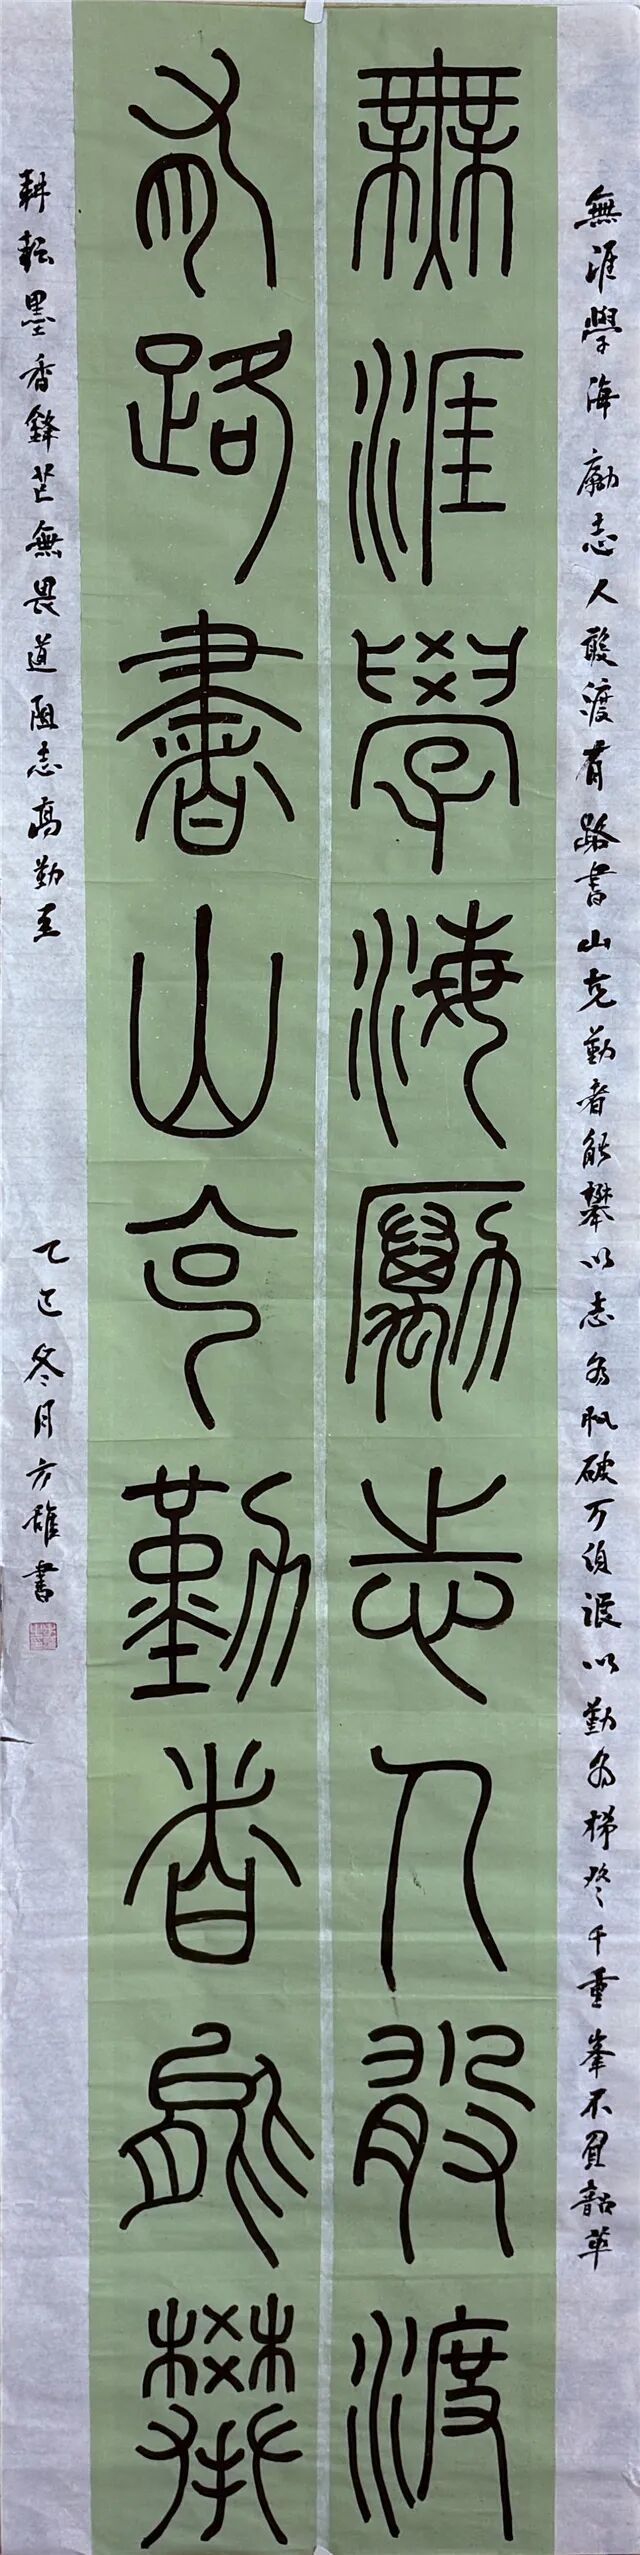 無涯學海勵志人敢渡有路書山克勤者能攀以志為帆破万頃浪以勤為梯登千重峯不負韶華
無涯學海勵志人敢渡
有路書山克勤者能攀
耕耘墨香鋒芒無畏道阻志高勤至
乙巳冬月方雄書